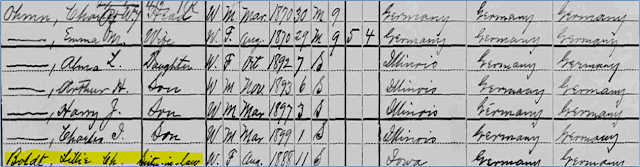 Ohmn, Charles W. Head W M Mar 1870 30 M 9 Germany Germany Germany
——, Emma M. Wife W F Aug 1870 29 M 9 5 4 Germany Germany Germany
——, Alma L. Daughter W F Oct 1892 7 S Illinois Germany Germany
——, Arthur H. Son W M Nov 1893 6 S Illinois Germany Germany
——, Harry J. Son W M Mar 1897 3 S Illinois Germany Germany
——, Charles I. Son W M Mar 1899 1 S Illinois Germany Germany
Boldt, Lillie Sister-in-law W F Aug 1888 11 S Iowa Germany Germany